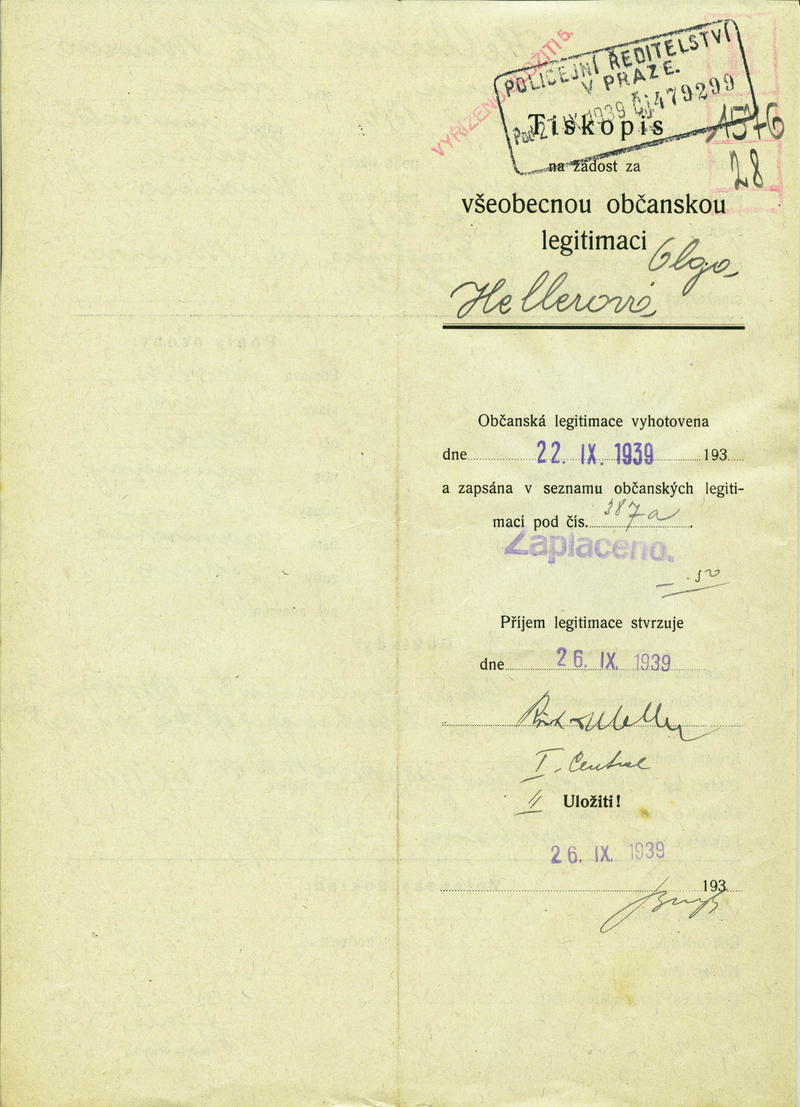 VYŘÍZENO ULOŽITI 5.
POLICEJNÍ ŘEDITELSTVÍ
V PRAZE.
IX 1939 Čj 479299
Tiskopis
1576
28
na žádost za
všeobecnou občanskou
legitimaci
Olga
Hellerová
Občanská legitimace vyhotovena
dne 22. IX. 1939 193
a zapsána v seznamu občanských legiti-
mací pod čís. 387a.
Zaplaceno.
Příjem legitimace stvrzuje
dne 26. IX. 1939
I. Central
II Uložiti!
26. IX. 1939
193